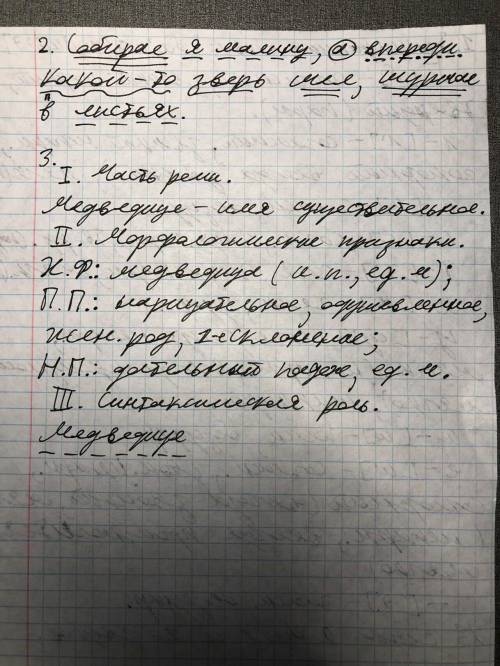 2. Собирае я малину, а впереди
какой-то зверь шел, шурше
в листьях.
3.
I. Часть речи.
Медведице – имя существительное.
II. Морфологические признаки.
Н.Ф.: медведица (и.п., ед.ч);
П.П.: нарицательное, одушевленное,
жен. род, 1-е склонение;
Н.П.: дательный падеж, ед. ч.
III. Синтаксическая роль.
Медведице